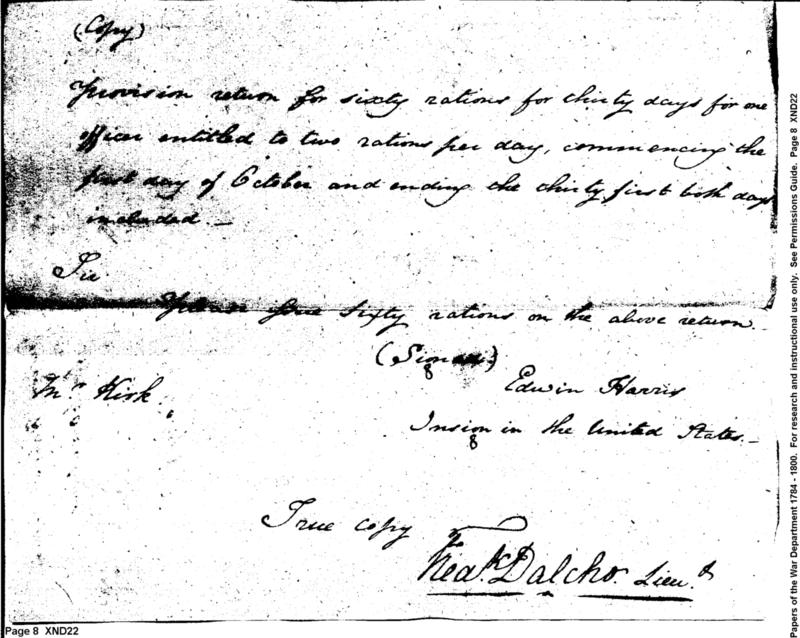 (Copy)
Provision return for sixty rations for thirty days for one
officer entitled to two rations per day, commencing the
first day of October and ending the thirty first both days
included. —
Sir
Please issue sixty rations on the above return.
(Signed)
Edwin Harris
Mr Kirk
Insign in the United States. —
True copy
Fredk Dalcho Lieut
Page 8 XND22
Papers of the War Department 1784 - 1800. For research and instructional use only. See Permissions Guide. Page 8 XND22